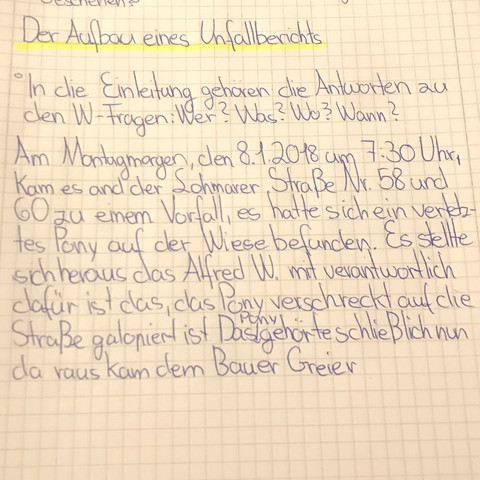 Geschehen?
Der Aufbau eines Unfallberichts
° In die Einleitung gehören die Antworten zu
den W-Fragen: Wer? Was? Wo? Wann?
Am Montagmorgen, den 8.1.2018 um 7:30 Uhr,
kam es and der Lohmarer Straße Nr. 58 und
60 zu einem Vorfall, es hatte sich ein verletz-
tes Pony auf der Wiese befunden. Es stellte
sich heraus das Alfred W. mit verantwortlich
dafür ist das, das Pony verschreckt auf die
Straße galopiert ist Das Pony gehörte schließlich nun
da raus kam dem Bauer Greier